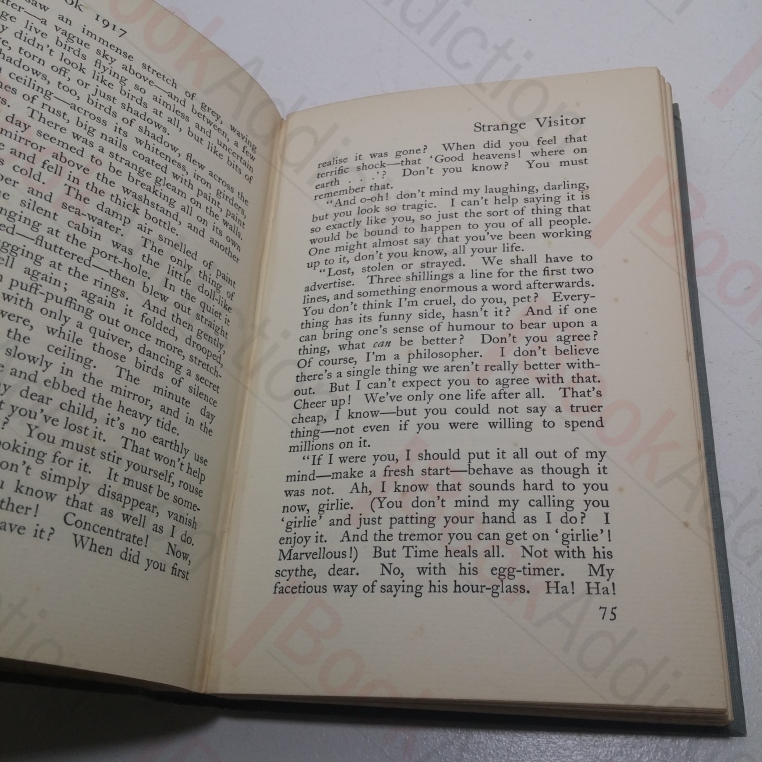 ok 1917
saw an immense stretch of grey, waving
ter—a vague sky above—and between, a few
ge live birds flying so aimless and uncertain
y didn't look like birds at all, but like bits of
e, torn off, or just shadows.
shadows, too, birds of shadow, flew across the
ceiling—across its whiteness, iron girders,
nes of rust, big nails coated with paint, paint
s. There was a strange gleam on the walls.
day seemed to be breaking all on its own
mirror above the washstand, and another
e and fell in the thick bottle.
s cold. The damp air smelled of paint
per and sea-water. The only thing of
e silent cabin was the little doll-like
nging at the port-hole. In the quiet it
ed—fluttered—then blew out straight
gging at the rings. And then gently,
ell again; again it folded, drooped,
puff-puffing out once more, stretch-
with only a quiver, dancing a secret
were, while those birds of silence
the ceiling. The minute day
slowly in the mirror, and in the
e and ebbed the heavy tide.
y dear child, it's no earthly use
t you've lost it. That won't help
? You must stir yourself, rouse
oking for it. It must be some-
on't simply disappear, vanish
u know that as well as I do.
ther! Concentrate! Now,
ave it? When did you first
Strange Visitor
realise it was gone? When did you feel that
terrific shock—that 'Good heavens! where on
earth . . .'? Don't you know? You must
remember that.
"And o-oh! don't mind my laughing, darling,
but you look so tragic. I can't help saying it is
so exactly like you, so just the sort of thing that
would be bound to happen to you of all people.
One might almost say that you've been working
up to it, don't you know, all your life.
"Lost, stolen or strayed. We shall have to
advertise. Three shillings a line for the first two
lines, and something enormous a word afterwards.
You don't think I'm cruel, do you, pet? Every-
thing has its funny side, hasn't it? And if one
can bring one's sense of humour to bear upon a
thing, what can be better? Don't you agree?
Of course, I'm a philosopher. I don't believe
there's a single thing we aren't really better with-
out. But I can't expect you to agree with that.
Cheer up! We've only one life after all. That's
cheap, I know—but you could not say a truer
thing—not even if you were willing to spend
millions on it.
"If I were you, I should put it all out of my
mind—make a fresh start—behave as though it
was not. Ah, I know that sounds hard to you
now, girlie. (You don't mind my calling you
'girlie' and just patting your hand as I do? I
enjoy it. And the tremor you can get on 'girlie'!
Marvellous!) But Time heals all. Not with his
scythe, dear. No, with his egg-timer. My
facetious way of saying his hour-glass. Ha! Ha!
75
BookAddiction